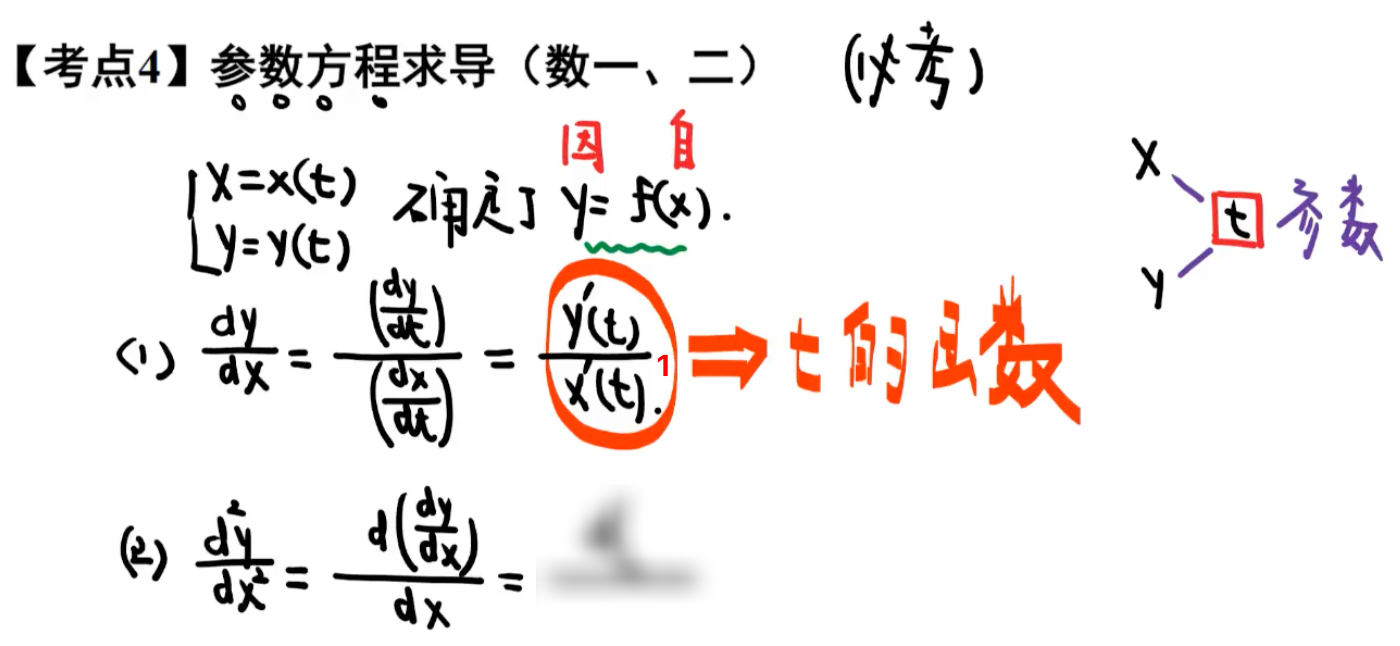 【考点4】参数方程求导（数一、二） (必考)
因 自
x=x(t)
y=y(t)
确定了 y=f(x).
x
y
t 参数
(1) dy/dx = (dy/dt)/(dx/dt) = y'(t)/x'(t). 1 ⇒ t的函数
(2) d²y/dx² = d(dy/dx)/dx =